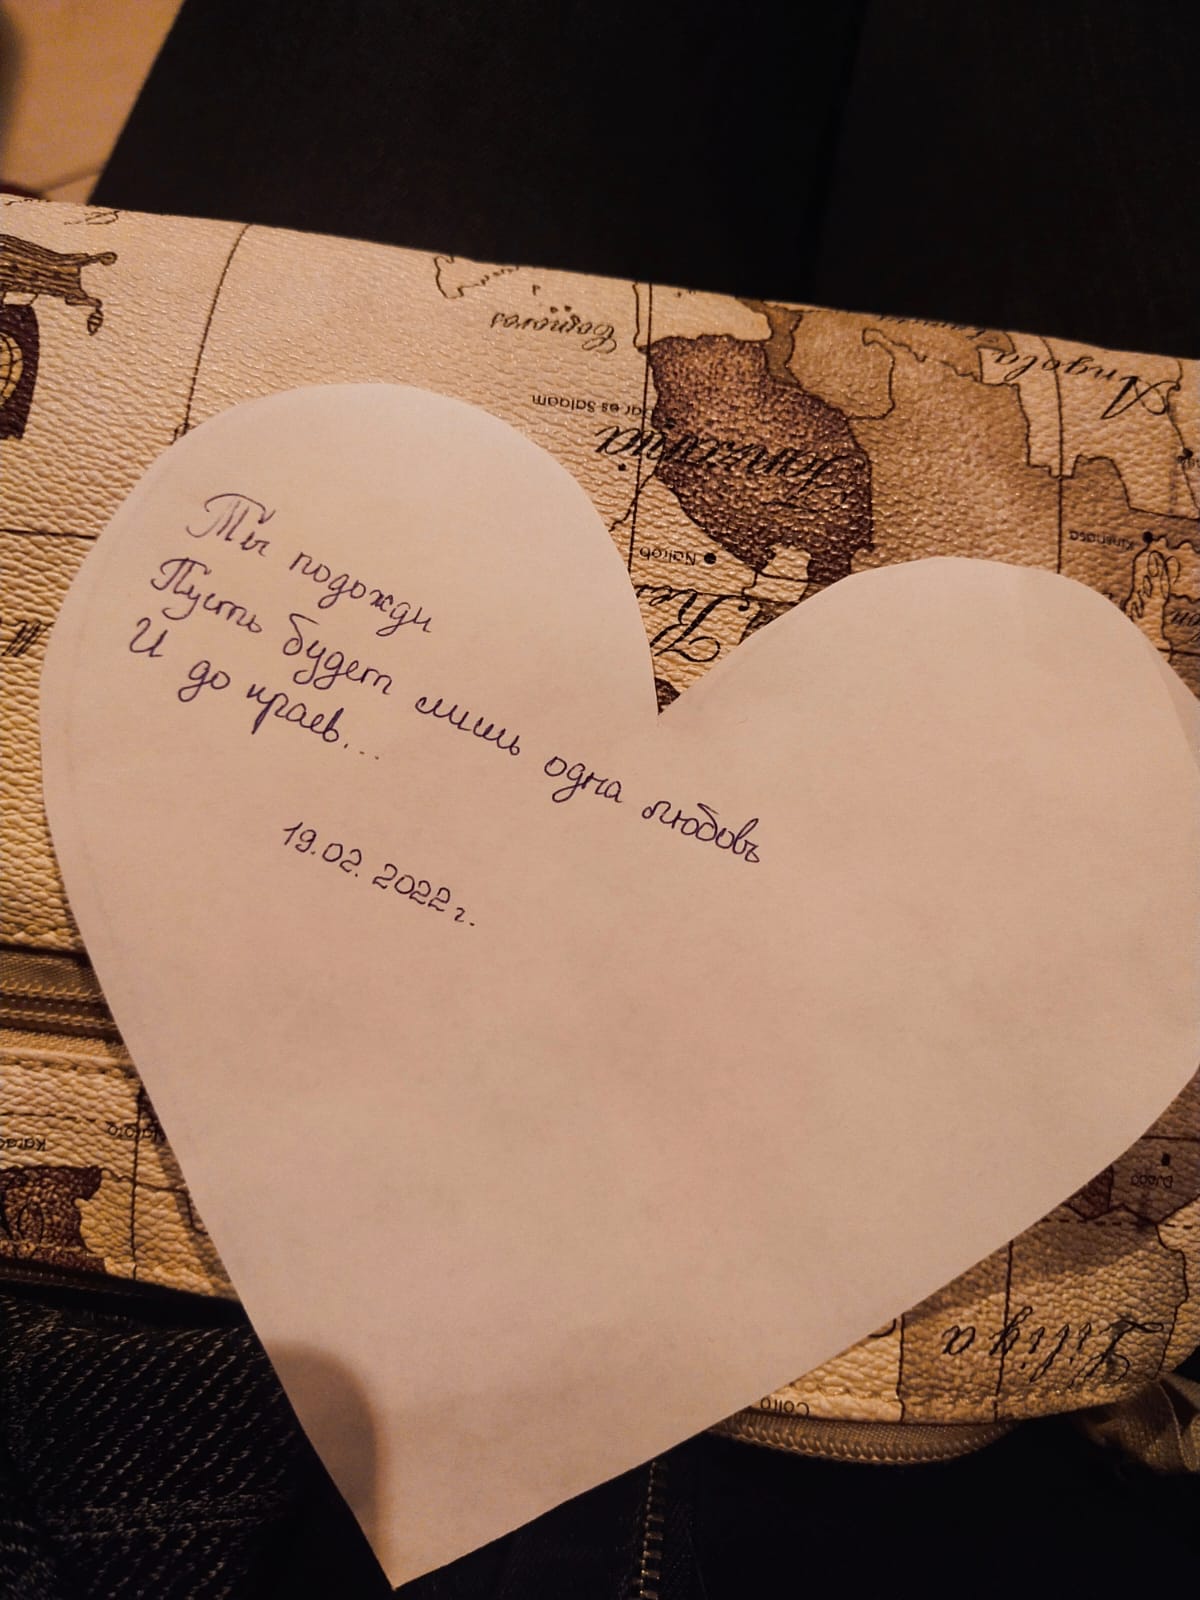 Ты подожди
Пусть будет лишь одна любовь
И до краев...
19.02.2022 г.
Comoros
Dar es Salaam
Tanzania
Angola
Nairobi
Kinshasa
Ke
Libya